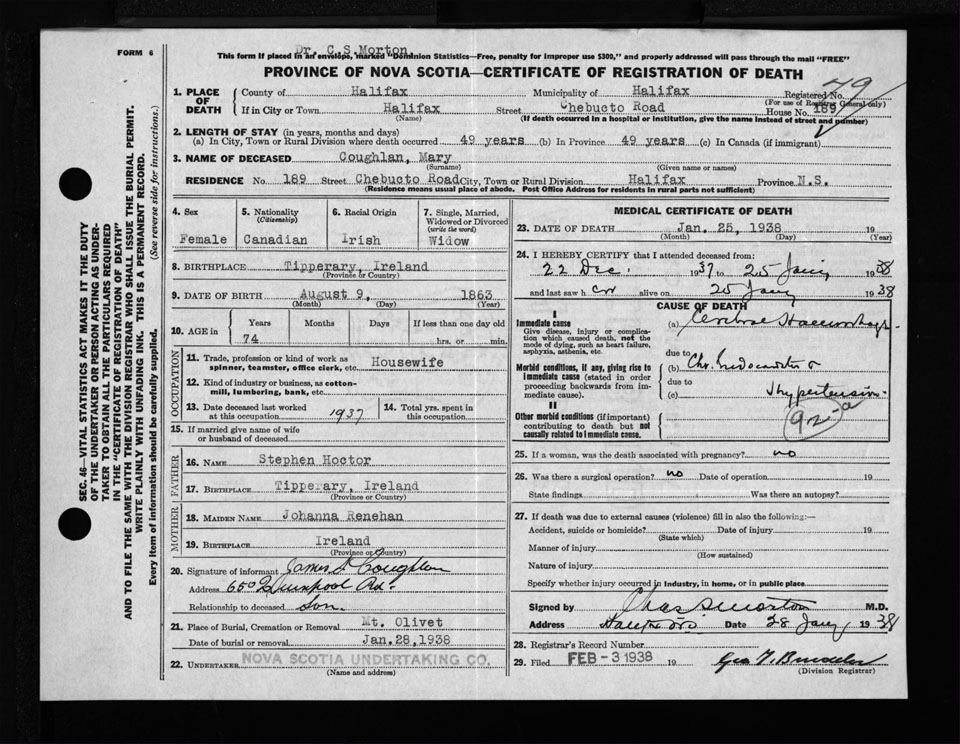 FORM 6
Dr. C.S.Morton,
This form if placed in an envelope, marked "Dominion Statistics—Free, penalty for improper use $300," and properly addressed will pass through the mail "FREE"
PROVINCE OF NOVA SCOTIA—CERTIFICATE OF REGISTRATION OF DEATH
SEC. 46—VITAL STATISTICS ACT MAKES IT THE DUTY
OF THE UNDERTAKER OR PERSON ACTING AS UNDER-
TAKER TO OBTAIN ALL THE PARTICULARS REQUIRED
IN THE "CERTIFICATE OF REGISTRATION OF DEATH"
AND TO FILE THE SAME WITH THE DIVISION REGISTRAR WHO SHALL ISSUE THE BURIAL PERMIT.
WRITE PLAINLY WITH UNFADING INK. THIS IS A PERMANENT RECORD.
Every item of information should be carefully supplied. (See reverse side for instructions.)
1. PLACE OF DEATH
County of Halifax Municipality of Halifax Registered No. 79
(For use of Registrar General only)
If in City or Town Halifax Street Chebucto Road House No. 189
(Name) (If death occurred in a hospital or institution, give the name instead of street and number)
2. LENGTH OF STAY (in years, months and days)
(a) In City, Town or Rural Division where death occurred 49 years (b) In Province 49 years (c) In Canada (if immigrant)
3. NAME OF DECEASED Coughlan, Mary
(Surname) (Given name or names)
RESIDENCE No. 189 Street Chebucto Road City, Town or Rural Division Halifax Province N.S.
(Residence means usual place of abode. Post Office Address for residents in rural parts not sufficient)
4. Sex Female
5. Nationality (Citizenship) Canadian
6. Racial Origin Irish
7. Single, Married, Widowed or Divorced (write the word) Widow
8. BIRTHPLACE Tipperary, Ireland
(Province or Country)
9. DATE OF BIRTH August 9, 1863
(Month) (Day) (Year)
10. AGE in Years Months Days If less than one day old
74 hrs. or min.
OCCUPATION
11. Trade, profession or kind of work as spinner, teamster, office clerk, etc. Housewife
12. Kind of industry or business, as cotton-mill, lumbering, bank, etc.
13. Date deceased last worked at this occupation 1937
14. Total yrs. spent in this occupation
15. If married give name of wife or husband of deceased
FATHER
16. NAME Stephen Hoctor
17. BIRTHPLACE Tipperary, Ireland
(Province or Country)
MOTHER
18. MAIDEN NAME Johanna Renehan
19. BIRTHPLACE Ireland
(Province or Country)
20. Signature of informant James Coughlan
Address 650 Quinpool Rd.
Relationship to deceased Son.
21. Place of Burial, Cremation or Removal Mt. Olivet
Date of burial or removal Jan.28,1938
22. UNDERTAKER NOVA SCOTIA UNDERTAKING CO.
(Name and address)
MEDICAL CERTIFICATE OF DEATH
23. DATE OF DEATH Jan. 25, 1938 19
(Month) (Day) (Year)
24. I HEREBY CERTIFY that I attended deceased from:
22 Dec. 1937 to 25 Jany 1938
and last saw her alive on 25 Jany 1938
CAUSE OF DEATH
I
Immediate cause
Give disease, injury or complication which caused death, not the mode of dying, such as heart failure, asphyxia, asthenia, etc.
(a) Cerebral Haemorrhage
due to
Morbid conditions, if any, giving rise to immediate cause (stated in order proceeding backwards from immediate cause).
(b) Chr. Endocarditis &
due to
(c) Hypertension
II
Other morbid conditions (if important) contributing to death but not causally related to immediate cause.
92-a
25. If a woman, was the death associated with pregnancy? no
26. Was there a surgical operation? no Date of operation 19
State findings Was there an autopsy?
27. If death was due to external causes (violence) fill in also the following:—
Accident, suicide or homicide? Date of injury 19
(State which)
Manner of injury
(How sustained)
Nature of injury
Specify whether injury occurred in industry, in home, or in public place
Signed by Chas S Morton M.D.
Address Halifax NS Date 28 Jany 1938
28. Registrar's Record Number
29. Filed FEB -3 1938 19
(Division Registrar)